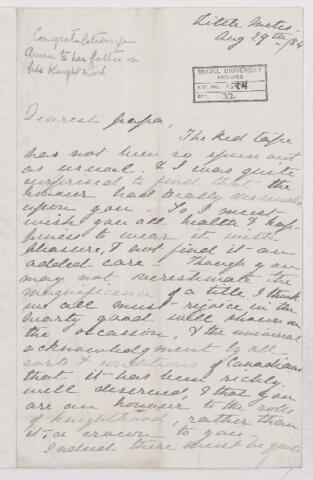 Little Metis
Aug 29th/84
Congratulations from
Anna to her father on
his Knighthood
McGILL UNIVERSITY
ARCHIVES
ACC. NO. 1584
REF. 22
Dearest Papa
The Red tape
has not been so spun out
as usual, & I was quite
surprised to find that the
honour had really descended
upon you. So I must
wish you all health & hap-
piness to wear it with
pleasure, & not find it an
added care. Though you
may not overestimate the
magnificence of a title, I think
we all must rejoice in the
hearty good will shown on
the occasion, & the universal
acknowledgment by all
sorts & conditions of Canadians
that it has been richly
well deserved, & that you
are an honour to the rolls
of Knighthood, rather than
it, a crown to you.
Indeed there must be quite